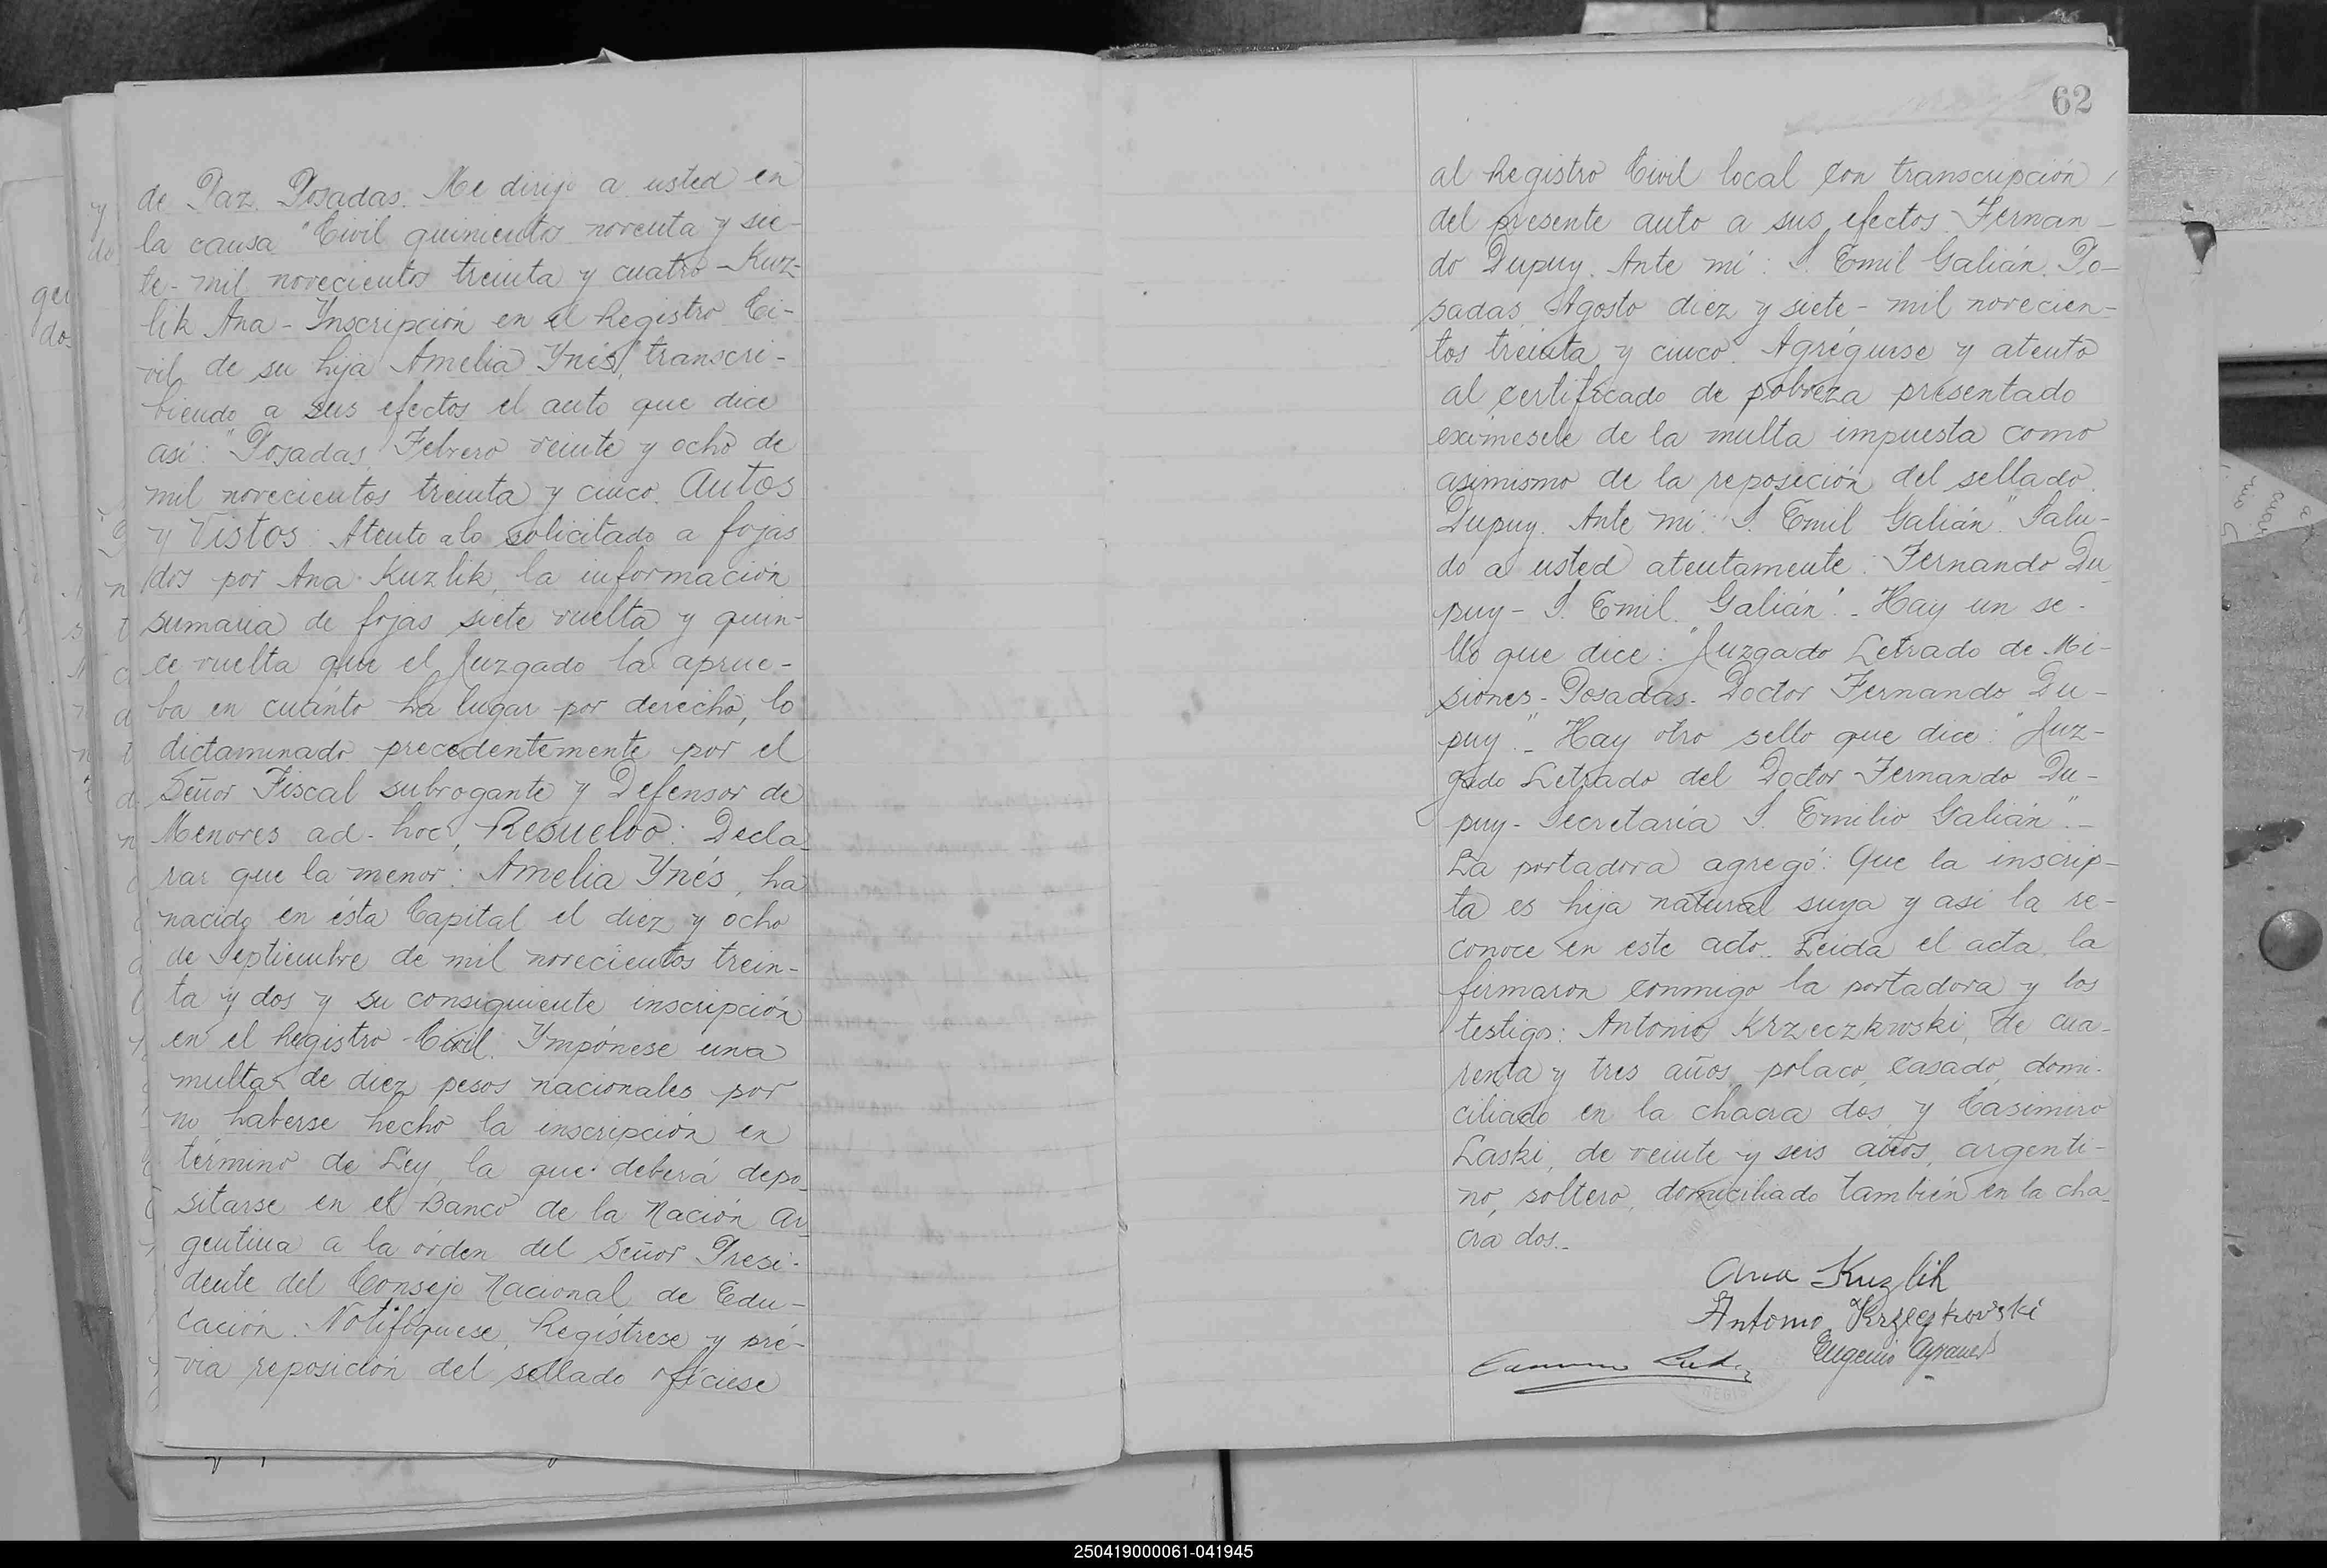 de Paz. Posadas. Me dirijo a usted en
la causa "Civil quinientos noventa y sie-
te- mil novecientos treinta y cuatro - Kuz-
lik Ana - Ynscripción en el Registro Ci-
vil de su hija Amelia Ynés", transcri-
biendo a sus efectos el auto que dice
así: "Posadas, Febrero veinte y ocho de
mil novecientos treinta y cinco. Autos
y Vistos: Atento a lo solicitado a fojas
dos por Ana Kuzlik, la información
sumaria de fojas siete vuelta y quin-
ce vuelta que el Juzgado la aprue-
ba en cuánto ha lugar por derecho, lo
dictaminado precedentemente por el
Señor Fiscal subrogante y Defensor de
Menores ad-hoc, Resuelvo: Decla-
rar que la menor: Amelia Ynés, ha
nacido en ésta Capital el diez y ocho
de Septiembre de mil novecientos trein-
ta y dos y su consiguiente inscripción
en el Registro Civil. Ympónese una
multa de diez pesos nacionales por
no haberse hecho la inscripción en
término de Ley, la que deberá depo-
sitarse en el Banco de la Nación Ar-
gentina a la órden del Señor Presi-
dente del Consejo Nacional de Edu-
cación. Notifíquese, Regístrese y pré-
via reposición del sellado ofíciese
62
al Registro Civil local con transcripción
del presente auto a sus efectos. Fernan-
do Dupuy. Ante mí: S. Emil Galián. Po-
sadas, Agosto diez y siete - mil novecien-
tos treinta y cinco. Agréguese y atento
al certificado de pobreza presentado
exímesele de la multa impuesta como
asimismo de la reposición del sellado.
Dupuy. Ante mí: S. Emil Galián". Salu-
do a usted atentamente: Fernando Du-
puy - S. Emil Galián". - Hay un se-
llo que dice: "Juzgado Letrado de Mi-
siones - Posadas - Doctor Fernando Du-
puy". - Hay otro sello que dice: "Juz-
gado Letrado del Doctor Fernando Du-
puy - Secretaría S. Emilio Galián". -
La portadora agregó: Que la inscrip-
ta es hija natural suya y así la re-
conoce en este acto. Leida el acta, la
firmaron conmigo la portadora y los
testigos: Antonio Krzeczkowski, de cua-
renta y tres años, polaco, casado, domi-
ciliado en la chacra dos, y Casimiro
Laski, de veinte y seis años, argenti-
no, soltero, domiciliado también en la cha-
cra dos.-
Ana Kuzlik
Antonio Krzeczkowski
Eugenio
250419000061-041945